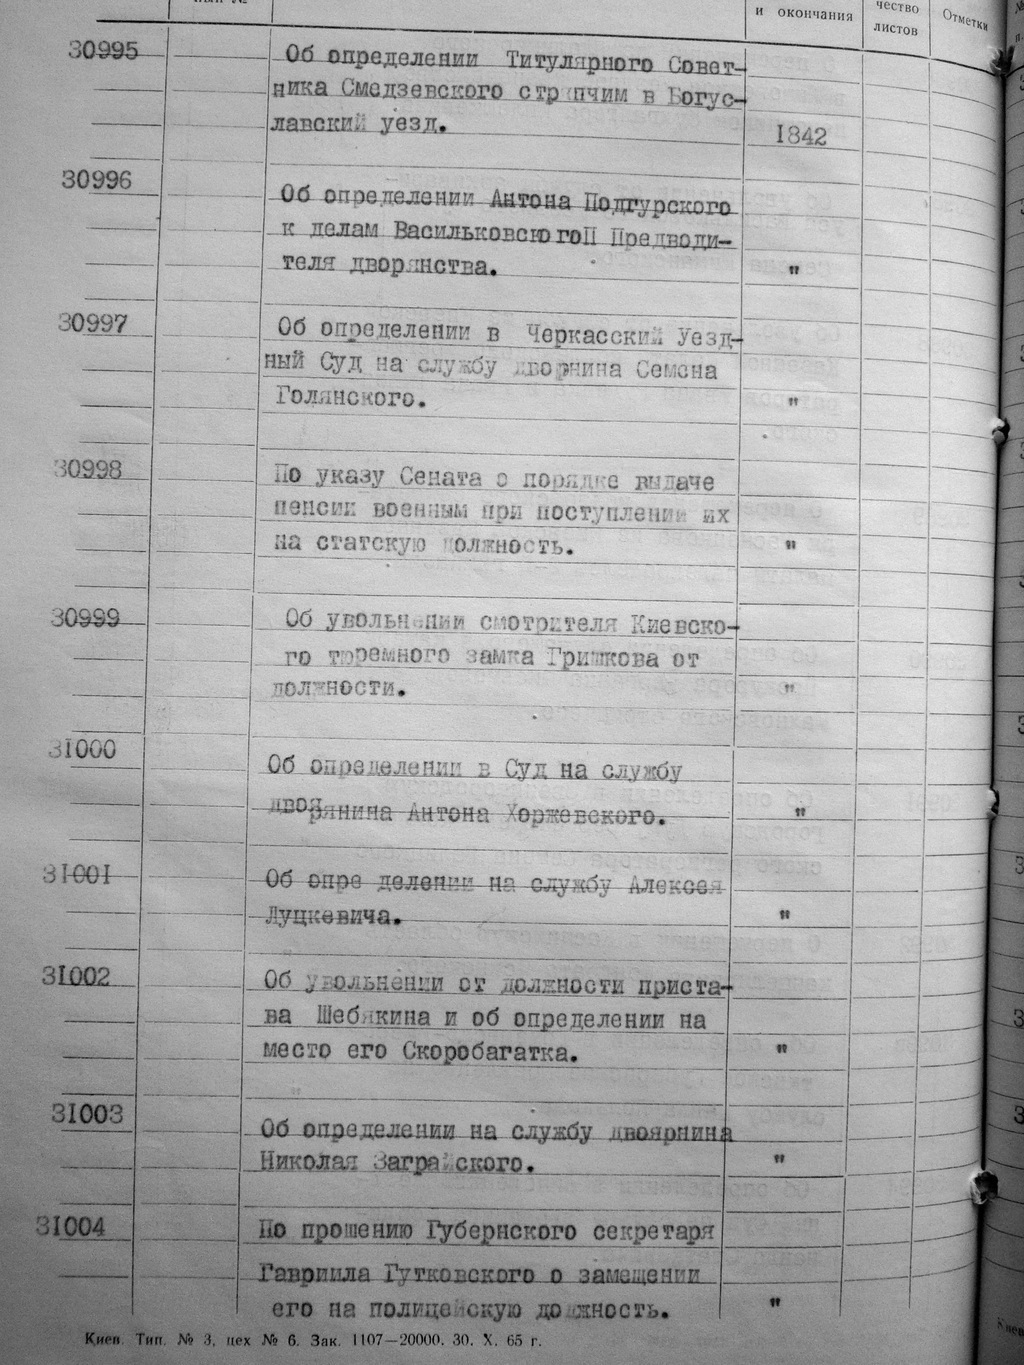 и окончания
чество
листов
Отметки
30995
Об определении Титулярного Совет-
ника Смедзевского стряпчим в Богус-
лавский уезд.
1842
30996
Об определении Антона Подгурского
к делам ВасильковсюгоП Предводи-
теля дворянства.
"
30997
Об определении в Черкасский Уезд-
ный Суд на службу двормнина Семена
Голянского.
"
30998
По указу Сената о порядке выдаче
пенсии военным при поступлении их
на статскую должность.
"
30999
Об увольнении смотрителя Киевско-
го тюремного замка Гришкова от
должности.
"
31000
Об определении в Суд на службу
дворянина Антона Хоржевского.
"
31001
Об опре делении на службу Алексея
Луцкевича.
"
31002
Об увольнении от должности приста-
ва Шебякина и об определении на
место его Скоробагатка.
"
31003
Об определении на службу двоярнина
Николая Заграйского.
"
31004
По прошению Губернского секретаря
Гавриила Гутковского о замещении
его на полицейскую должность.
"
Киев. Тип. № 3, цех № 6. Зак. 1107—20000. 30. X. 65 г.